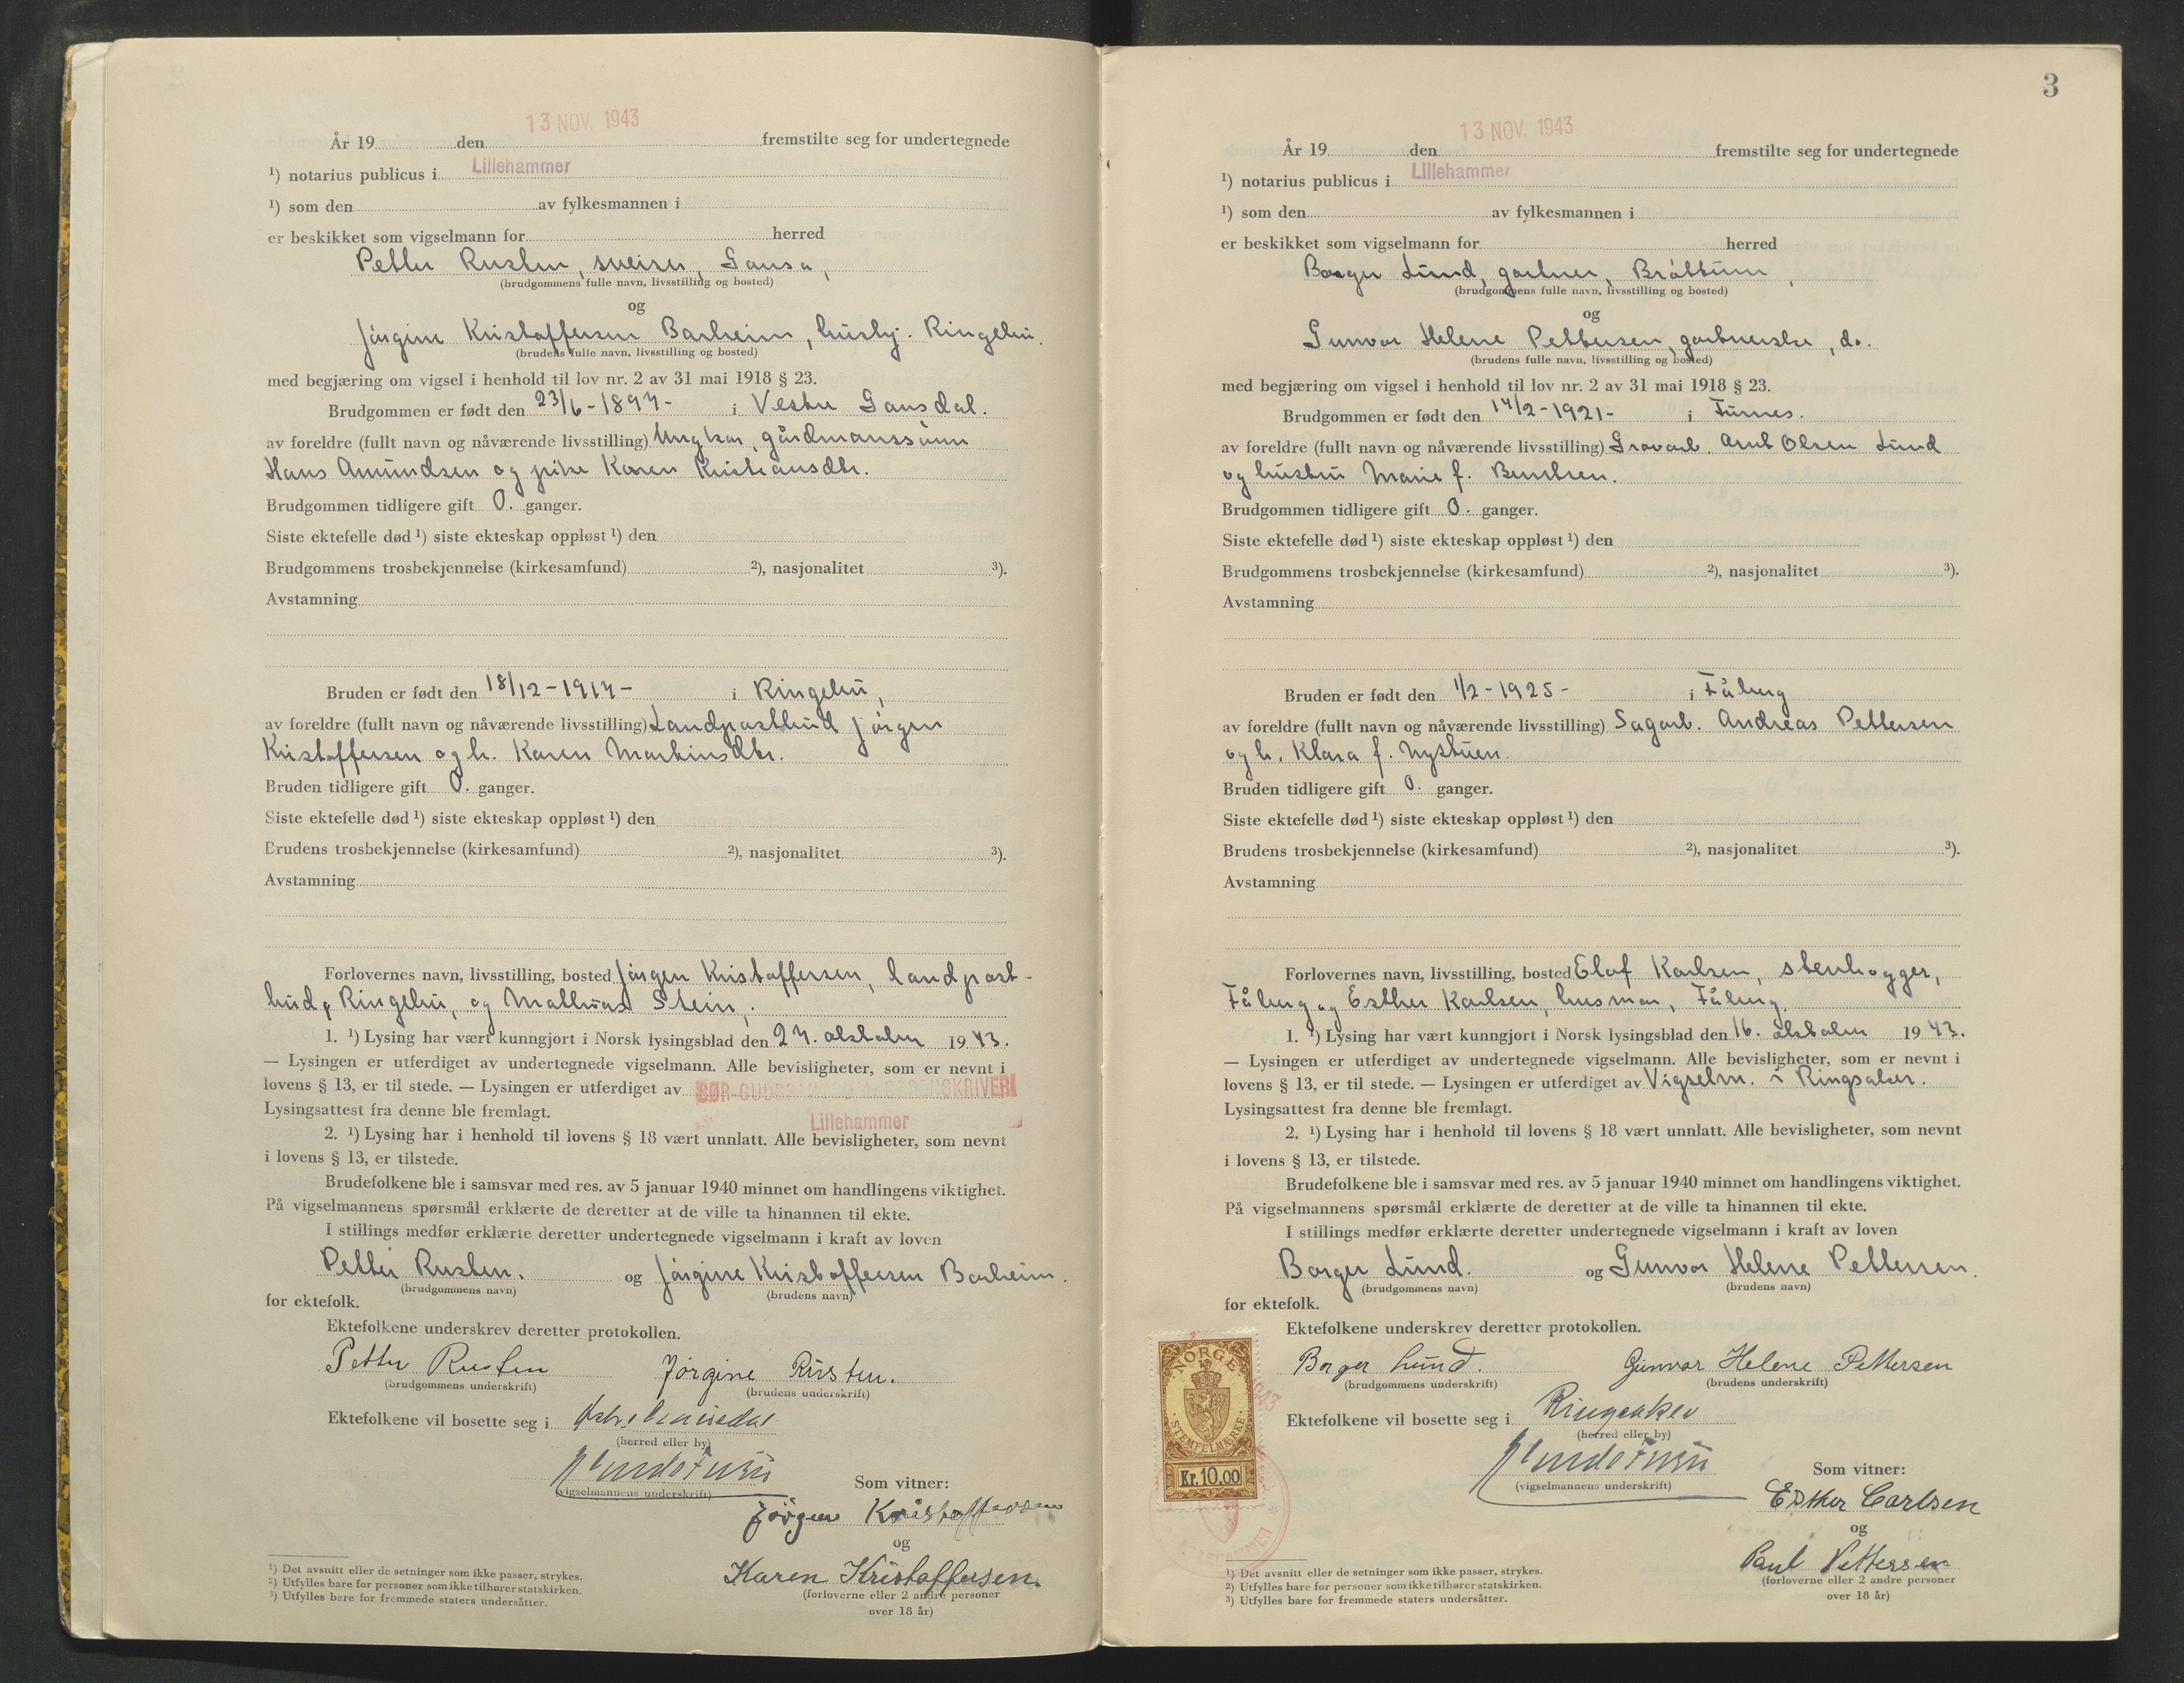 13 NOV. 1943
År 19 den fremstilte seg for undertegnede
¹) notarius publicus i Lillehammer
¹) som den av fylkesmannen i
er beskikket som vigselmann for herred
Petter Rusten, sveiser, Gausa,
(brudgommens fulle navn, livsstilling og bosted)
og
Jörgine Kristoffersen Barheim, husbj. Ringebu.
(brudens fulle navn, livsstilling og bosted)
med begjæring om vigsel i henhold til lov nr. 2 av 31 mai 1918 § 23.
Brudgommen er født den 23/6-1897- i Vestre Gausdal.
av foreldre (fullt navn og nåværende livsstilling) Ungkar, gårdmannssönn
Hans Amundsen og pike Karen Kristiansdtr.
Brudgommen tidligere gift 0. ganger.
Siste ektefelle død ¹) siste ekteskap oppløst ¹) den
Brudgommens trosbekjennelse (kirkesamfund) ²), nasjonalitet ³).
Avstamning
Bruden er født den 18/12-1917- i Ringebu,
av foreldre (fullt navn og nåværende livsstilling) Landpostbud Jörgen
Kristoffersen og h. Karen Martinsdtr.
Bruden tidligere gift 0. ganger.
Siste ektefelle død ¹) siste ekteskap oppløst ¹) den
Brudens trosbekjennelse (kirkesamfund) ²), nasjonalitet ³).
Avstamning
Forlovernes navn, livsstilling, bosted Jörgen Kristoffersen, landpost-
bud, Ringebu, og Mathias Stein,
1. ¹) Lysing har vært kunngjort i Norsk lysingsblad den 27. oktober 1943.
— Lysingen er utferdiget av undertegnede vigselmann. Alle bevisligheter, som er nevnt i
lovens § 13, er til stede. — Lysingen er utferdiget av SØR-GUDBRANDSDAL SORENSKRIVERI
Lysingsattest fra denne ble fremlagt. Lillehammer
2. ¹) Lysing har i henhold til lovens § 18 vært unnlatt. Alle bevisligheter, som nevnt
i lovens § 13, er tilstede.
Brudefolkene ble i samsvar med res. av 5 januar 1940 minnet om handlingens viktighet.
På vigselmannens spørsmål erklærte de deretter at de ville ta hinannen til ekte.
I stillings medfør erklærte deretter undertegnede vigselmann i kraft av loven
Petter Rusten. og Jörgine Kristoffersen Barheim.
(brudgommens navn) (brudens navn)
for ektefolk.
Ektefolkene underskrev deretter protokollen.
Petter Rusten Jörgine Rusten.
(brudgommens underskrift) (brudens underskrift)
Ektefolkene vil bosette seg i
(herred eller by)
(vigselmannens underskrift)
Som vitner:
Jörgen Kristoffersen
og
Karen Kristoffersen.
(forloverne eller 2 andre personer
over 18 år)
¹) Det avsnitt eller de setninger som ikke passer, strykes.
²) Utfylles bare for personer som ikke tilhører statskirken.
³) Utfylles bare for fremmede staters undersåtter.
3
13 NOV. 1943
År 19 den fremstilte seg for undertegnede
¹) notarius publicus i Lillehammer
¹) som den av fylkesmannen i
er beskikket som vigselmann for herred
Borger Lund, gartner, Bråttum,
(brudgommens fulle navn, livsstilling og bosted)
og
Gunvor Helene Pettersen, gartnerske, do.
(brudens fulle navn, livsstilling og bosted)
med begjæring om vigsel i henhold til lov nr. 2 av 31 mai 1918 § 23.
Brudgommen er født den 14/2-1921- i Furnes.
av foreldre (fullt navn og nåværende livsstilling) Gravarb. Arnt Olsen Lund
og hustru Marie f. Berntsen.
Brudgommen tidligere gift 0. ganger.
Siste ektefelle død ¹) siste ekteskap oppløst ¹) den
Brudgommens trosbekjennelse (kirkesamfund) ²), nasjonalitet ³).
Avstamning
Bruden er født den 1/2-1925- i Fåberg
av foreldre (fullt navn og nåværende livsstilling) Sagarb. Andreas Pettersen
og h. Klara f. Nystuen.
Bruden tidligere gift 0. ganger.
Siste ektefelle død ¹) siste ekteskap oppløst ¹) den
Brudens trosbekjennelse (kirkesamfund) ²), nasjonalitet ³).
Avstamning
Forlovernes navn, livsstilling, bosted Elof Karlsen, stenhogger,
Fåberg og Esther Karlsen, husmor, Fåberg.
1. ¹) Lysing har vært kunngjort i Norsk lysingsblad den 16. oktober 1943.
— Lysingen er utferdiget av undertegnede vigselmann. Alle bevisligheter, som er nevnt i
lovens § 13, er til stede. — Lysingen er utferdiget av Vigselm. i Ringsaker.
Lysingsattest fra denne ble fremlagt.
2. ¹) Lysing har i henhold til lovens § 18 vært unnlatt. Alle bevisligheter, som nevnt
i lovens § 13, er tilstede.
Brudefolkene ble i samsvar med res. av 5 januar 1940 minnet om handlingens viktighet.
På vigselmannens spørsmål erklærte de deretter at de ville ta hinannen til ekte.
I stillings medfør erklærte deretter undertegnede vigselmann i kraft av loven
Borger Lund. og Gunvor Helene Pettersen.
(brudgommens navn) (brudens navn)
for ektefolk.
Ektefolkene underskrev deretter protokollen.
Borger Lund. Gunvor Helene Pettersen
(brudgommens underskrift) (brudens underskrift)
Ektefolkene vil bosette seg i Ringsaker
(herred eller by)
(vigselmannens underskrift)
NORGE
STEMPELMÆRKE
Kr. 10.00
Som vitner:
Esther Carlsen
og
Paul Pettersen
(forloverne eller 2 andre personer
over 18 år)
¹) Det avsnitt eller de setninger som ikke passer, strykes.
²) Utfylles bare for personer som ikke tilhører statskirken.
³) Utfylles bare for fremmede staters undersåtter.